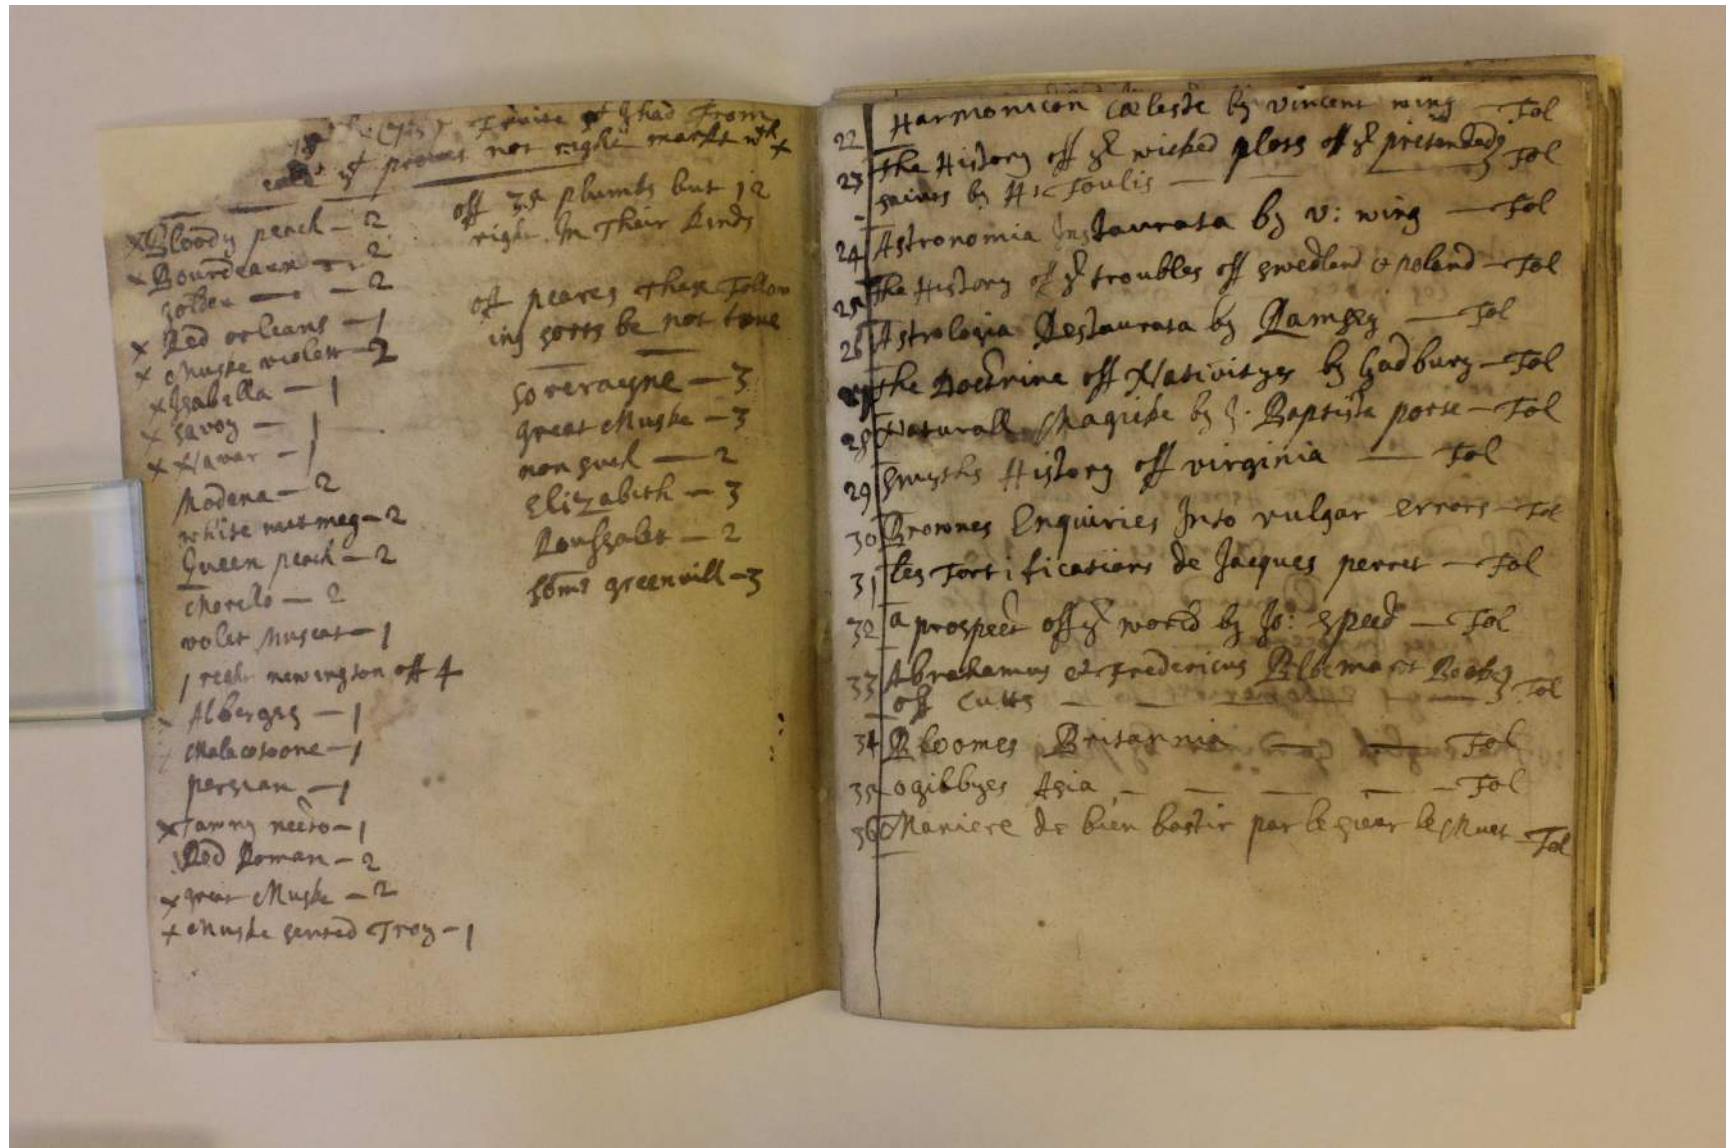 Fruite yt I had From
yt proves not right markt wth x
xBloody peach – 2
x Bourdeaux – 2
golden – – 2
x Red orleans – 1
x Muske violett – 2
x Isabella – 1
x Savoy – 1
x Navar – 1
Modena – 2
white nutmeg – 2
Queen peach – 2
Morello – 2
volet Muscat – 1
1 newington off 4
Alberges – 1
Malacotoone – 1
persian – 1
x Tawny – 1
Red Roman – 2
x great Muske – 2
x Muske sented Troy – 1
off plumbs but 12
right In Their kinds
off peares Follow
ing sorts be not
soverayne – 3
great Muske – 3
nonsuch – 2
Elizabeth – 3
Roussalet – 2
greenvill – 3
22 Harmonicon Cæleste by vincent wing – Fol
23 The History off ye wicked plots off ye pretended
saints by H: Foulis – – – Fol
24 Astronomia Instaurata by v: wing – Fol
25 The History off ye troubles off swedland & poland – Fol
26 Astrologia Restaurata by Ramsey – Fol
27 The Doctrine off Nativityes by Gadbury – Fol
28 Naturall Magicke by J. Baptista porte – Fol
29 Smyths History off virginia – Fol
30 Brownes Enquiries Into vulgar errors – Fol
31 les Fortifications de Jacques perret – Fol
32 a prospect off ye world by Jo: speed – Fol
33 Abrahamus et Fredericus Blomart Booke
off Cutts – – – – Fol
34 Bloomes Britannia – – Fol
35 ogilbyes Asia – – – – – Fol
36 Maniere de bien bastir par le sieur le Muet – Fol